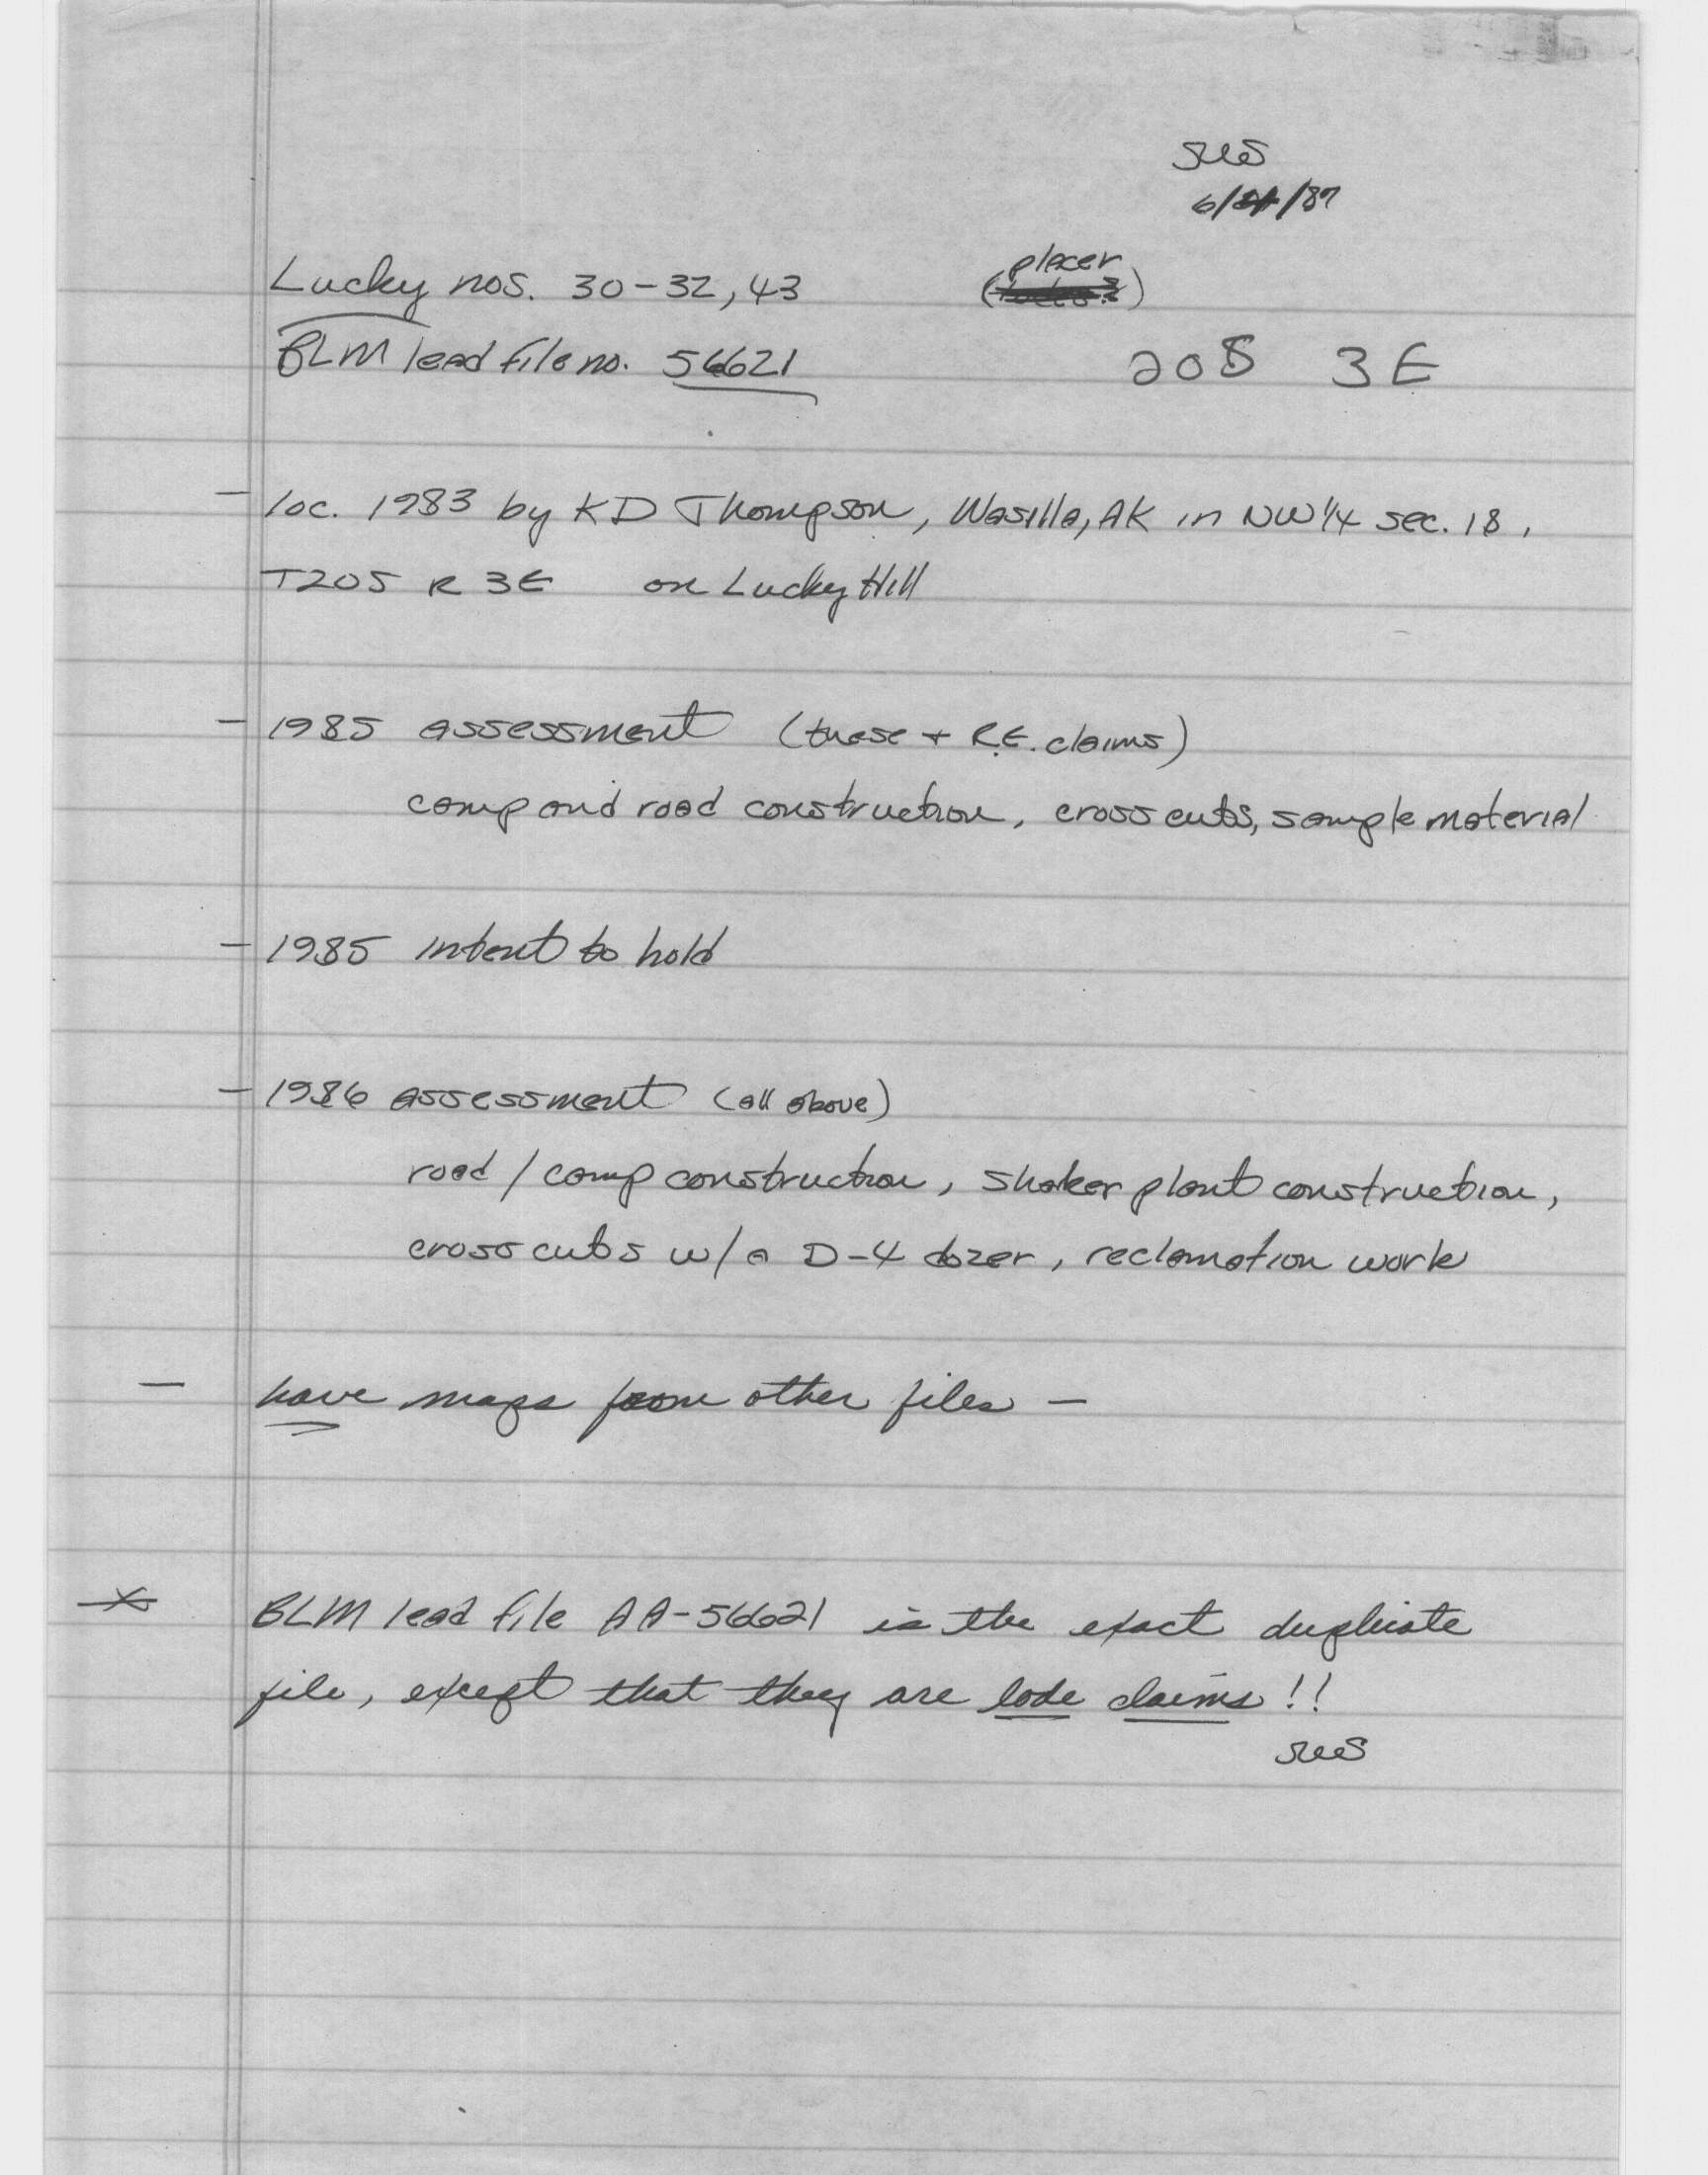 SWS
6/ /87
Lucky nos. 30-32, 43 (placer)
BLM lead file no. 56621 20S 3E
- loc. 1983 by KD Thompson, Wasilla, AK in NW 1/4 sec. 18,
T20S R 3E on Lucky Hill
- 1985 assessment (these + R.E. claims)
camp and road construction, cross cuts, sample material
- 1985 intent to hold
- 1986 assessment (all above)
road / camp construction, shaker plant construction,
cross cuts w/a D-4 dozer, reclamation work
- have maps from other files -
* BLM lead file AA-56621 is the exact duplicate
file, except that they are lode claims!!
SWS